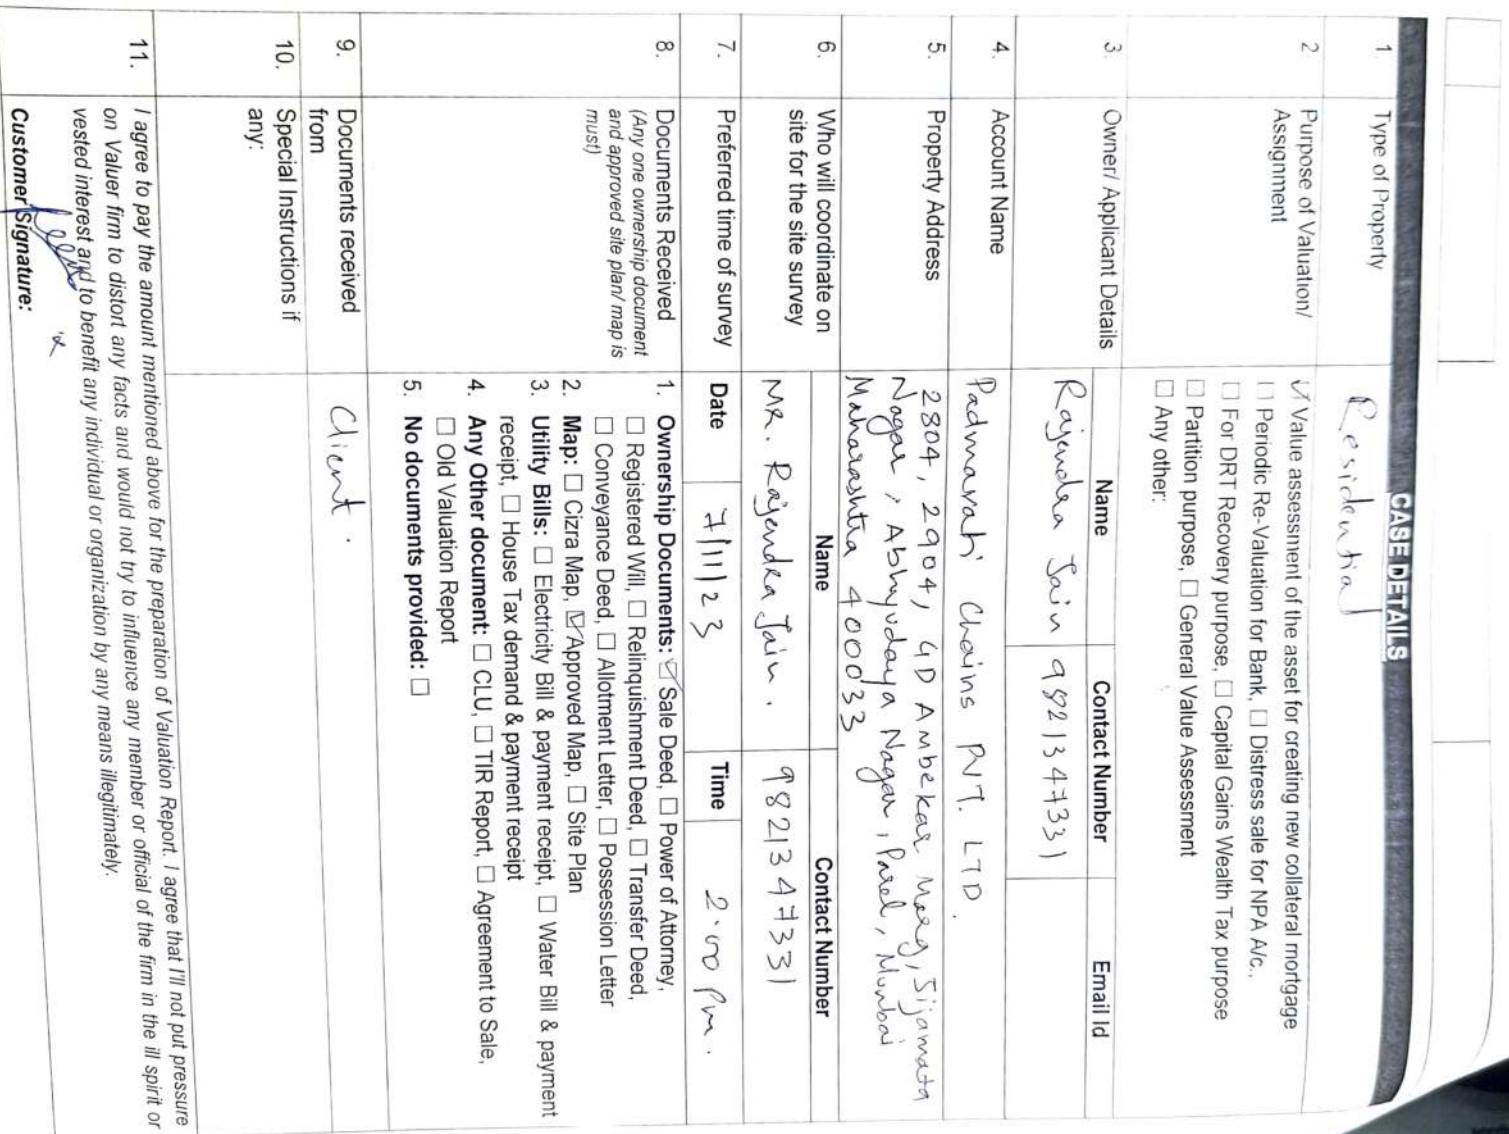 CASE DETAILS
1. Type of Property Residential
2 Purpose of Valuation/ Assignment
☑ Value assessment of the asset for creating new collateral mortgage
☐ Periodic Re-Valuation for Bank, ☐ Distress sale for NPA A/c.,
☐ For DRT Recovery purpose, ☐ Capital Gains Wealth Tax purpose
☐ Partition purpose, ☐ General Value Assessment
☐ Any other:
3. Owner/ Applicant Details
Name Contact Number Email Id
Rajendra Jain 9821347331
4. Account Name Padmavati Chains PVT. LTD.
5. Property Address
2804, 2904, GD Ambekar Marg, Jijamata
Nagar, Abhyudaya Nagar, Parel, Mumbai
Maharashtra 400033
6. Who will coordinate on
site for the site survey
Name Contact Number
MR. Rajendra Jain. 9821347331
7. Preferred time of survey Date 7/11/23 Time 2:00 Pm.
8. Documents Received
(Any one ownership document
and approved site plan/ map is
must)
1. Ownership Documents: ☑ Sale Deed, ☐ Power of Attorney,
☐ Registered Will, ☐ Relinquishment Deed, ☐ Transfer Deed,
☐ Conveyance Deed, ☐ Allotment Letter, ☐ Possession Letter
2. Map: ☐ Cizra Map, ☑ Approved Map, ☐ Site Plan
3. Utility Bills: ☐ Electricity Bill & payment receipt, ☐ Water Bill & payment
receipt, ☐ House Tax demand & payment receipt
4. Any Other document: ☐ CLU, ☐ TIR Report, ☐ Agreement to Sale,
☐ Old Valuation Report
5. No documents provided: ☐
9. Documents received
from
Client.
10. Special Instructions if
any:
11. I agree to pay the amount mentioned above for the preparation of Valuation Report. I agree that I'll not put pressure
on Valuer firm to distort any facts and would not try to influence any member or official of the firm in the ill spirit or
vested interest and to benefit any individual or organization by any means illegitimately.
Customer Signature: